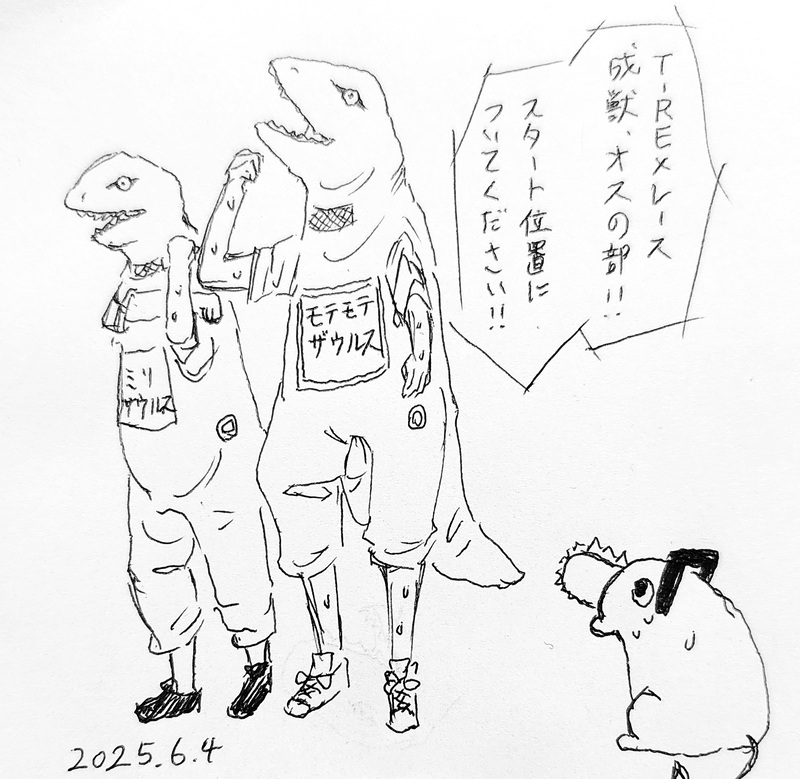 T-REXレース
成獣、オスの部!!
スタート位置に
ついてください!!
モテモテ
ザウルス
ミリ
ザウルス
2025.6.4